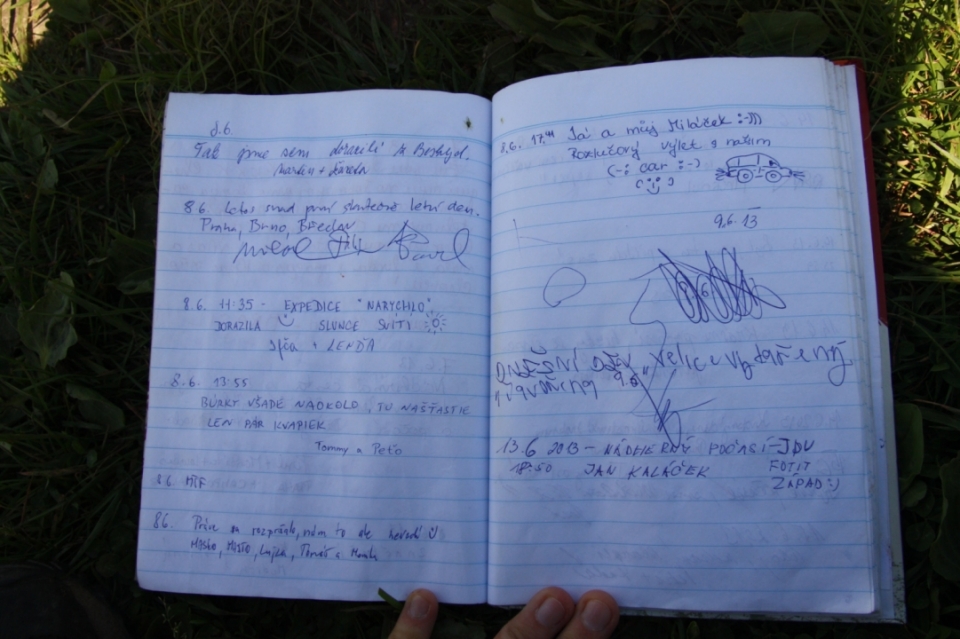 8.6.
Tak jsme sem dorazili
8.6. Letos snad první skutečně letní den.
Praha, Brno, Břeclav
Pavel
8.6. 11:35 - EXPEDICE "NARYCHLO"
DORAZILA SLUNCE SVÍTÍ
+ LENĎA
8.6. 13:55
BÚRKY VŠADE NAOKOLO, TU NAŠŤASTIE
LEN PÁR KVAPIEK
Tommy a Peťo
8.6.
8.6. Práve sa rozpršalo, nám to ale nevadí
Tomáš a
8.6. 17.44 Já a můj Miláček :-)))
Rozlučkový výlet s naším
(-: car :-)
9.6.13
DNEŠNÍ DEN velice vydařený
9.6.
13.6 2013 - NÁDHERNÝ POČASÍ - JDU
18:50 JAN KALÁČEK FOTIT
ZÁPAD :)